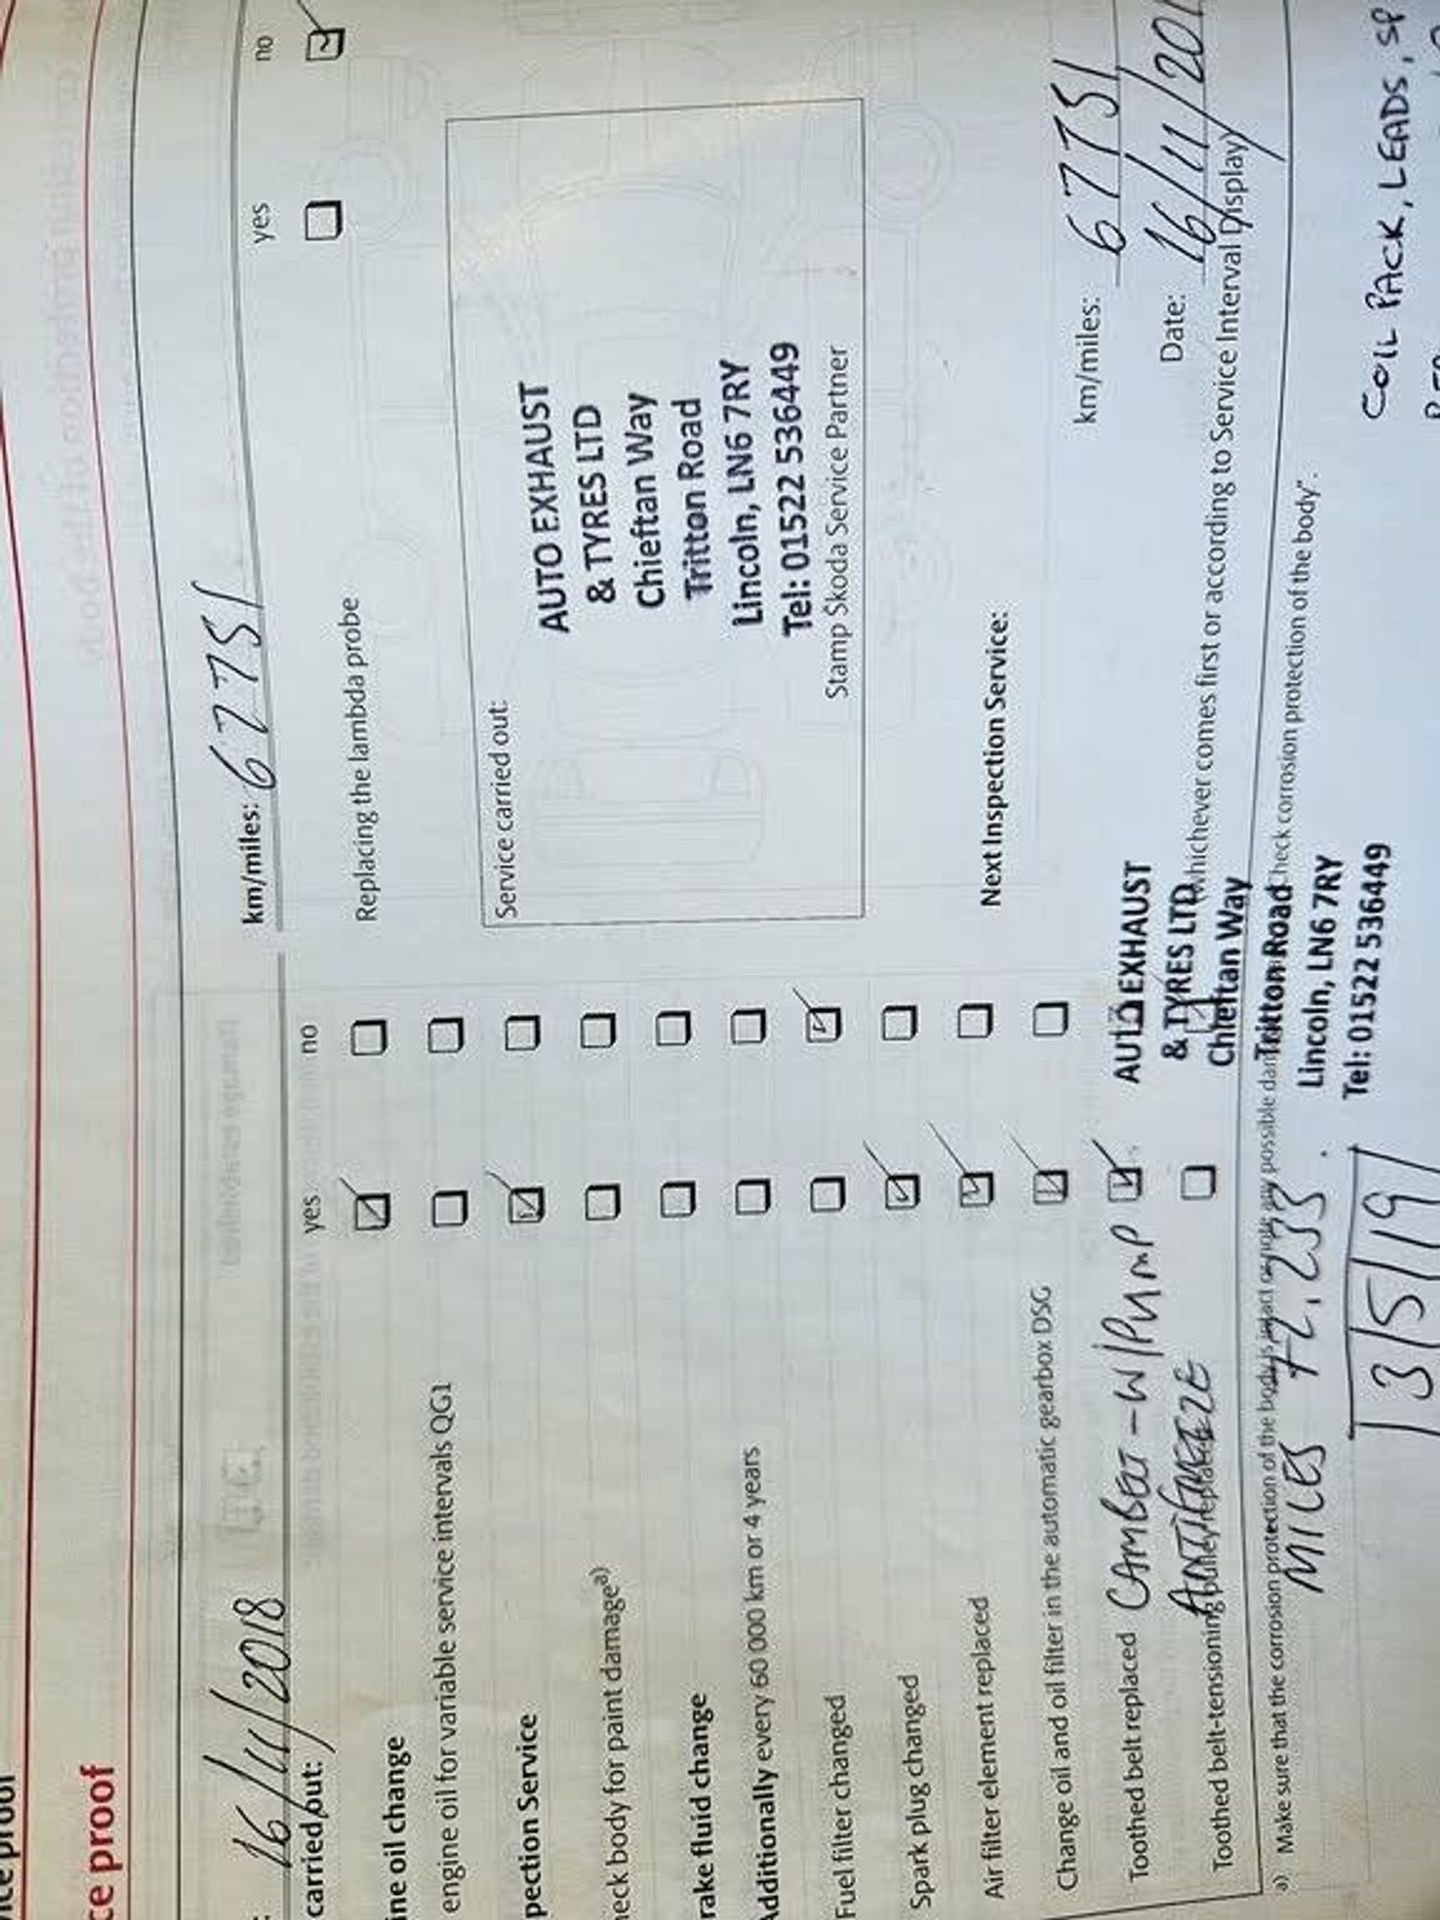 ce proof
16/11/2018
km/miles: 67751
carried out:
yes no
yes no
ine oil change
Replacing the lambda probe
engine oil for variable service intervals QG1
pection Service
Service carried out:
AUTO EXHAUST
& TYRES LTD
Chieftan Way
Tritton Road
Lincoln, LN6 7RY
Tel: 01522 536449
Stamp Skoda Service Partner
heck body for paint damage a)
rake fluid change
Additionally every 60 000 km or 4 years
Fuel filter changed
Spark plug changed
Air filter element replaced
Next Inspection Service:
Change oil and oil filter in the automatic gearbox DSG
km/miles: 67751
Toothed belt replaced CAMBELT - W/PUMP
ANTIFREEZE
AUTO EXHAUST
& TYRES LTD
Chieftan Way
Tritton Road
Lincoln, LN6 7RY
Tel: 01522 536449
Date: 16/11/201
Toothed belt-tensioning pulley replaced
whichever comes first or according to Service Interval Display)
a) Make sure that the corrosion protection of the body is intact or note any possible check corrosion protection of the body".
MILES 72,233.
3/5/19
COIL PACK, LEADS, SP